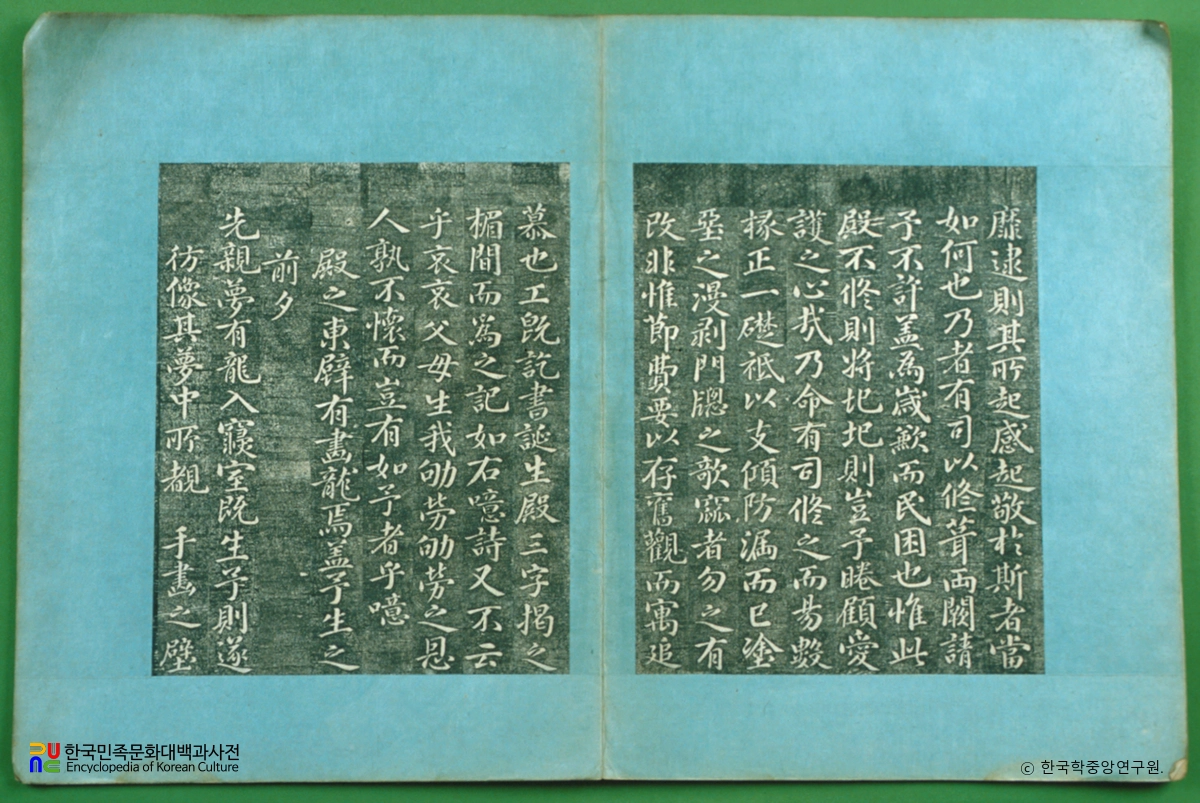 靡逮則其所起感起敬於斯者當
如何也乃者有司以修葺兩闕請
予不許盖為歲歉而民困也惟此
殿不修則將圮圮則豈予睠顧愛
護之心哉乃命有司修之而易數
椽正一礎祗以支傾防漏而已塗
堊之漫剥門牎之欹窳者勿之有
改非惟節費要以存舊觀而寓追
慕也工旣訖書誕生殿三字揭之
楣間而爲之記如右噫詩又不云
乎哀哀父母生我劬劳劬劳之恩
人孰不懷而豈有如予者乎噫
殿之東壁有畵龍焉盖予生之
前夕
先親夢有龍入寢室旣生予則遂
彷像其夢中所覩 手畵之壁
한국민족문화대백과사전
Encyclopedia of Korean Culture
ⓒ 한국학중앙연구원.